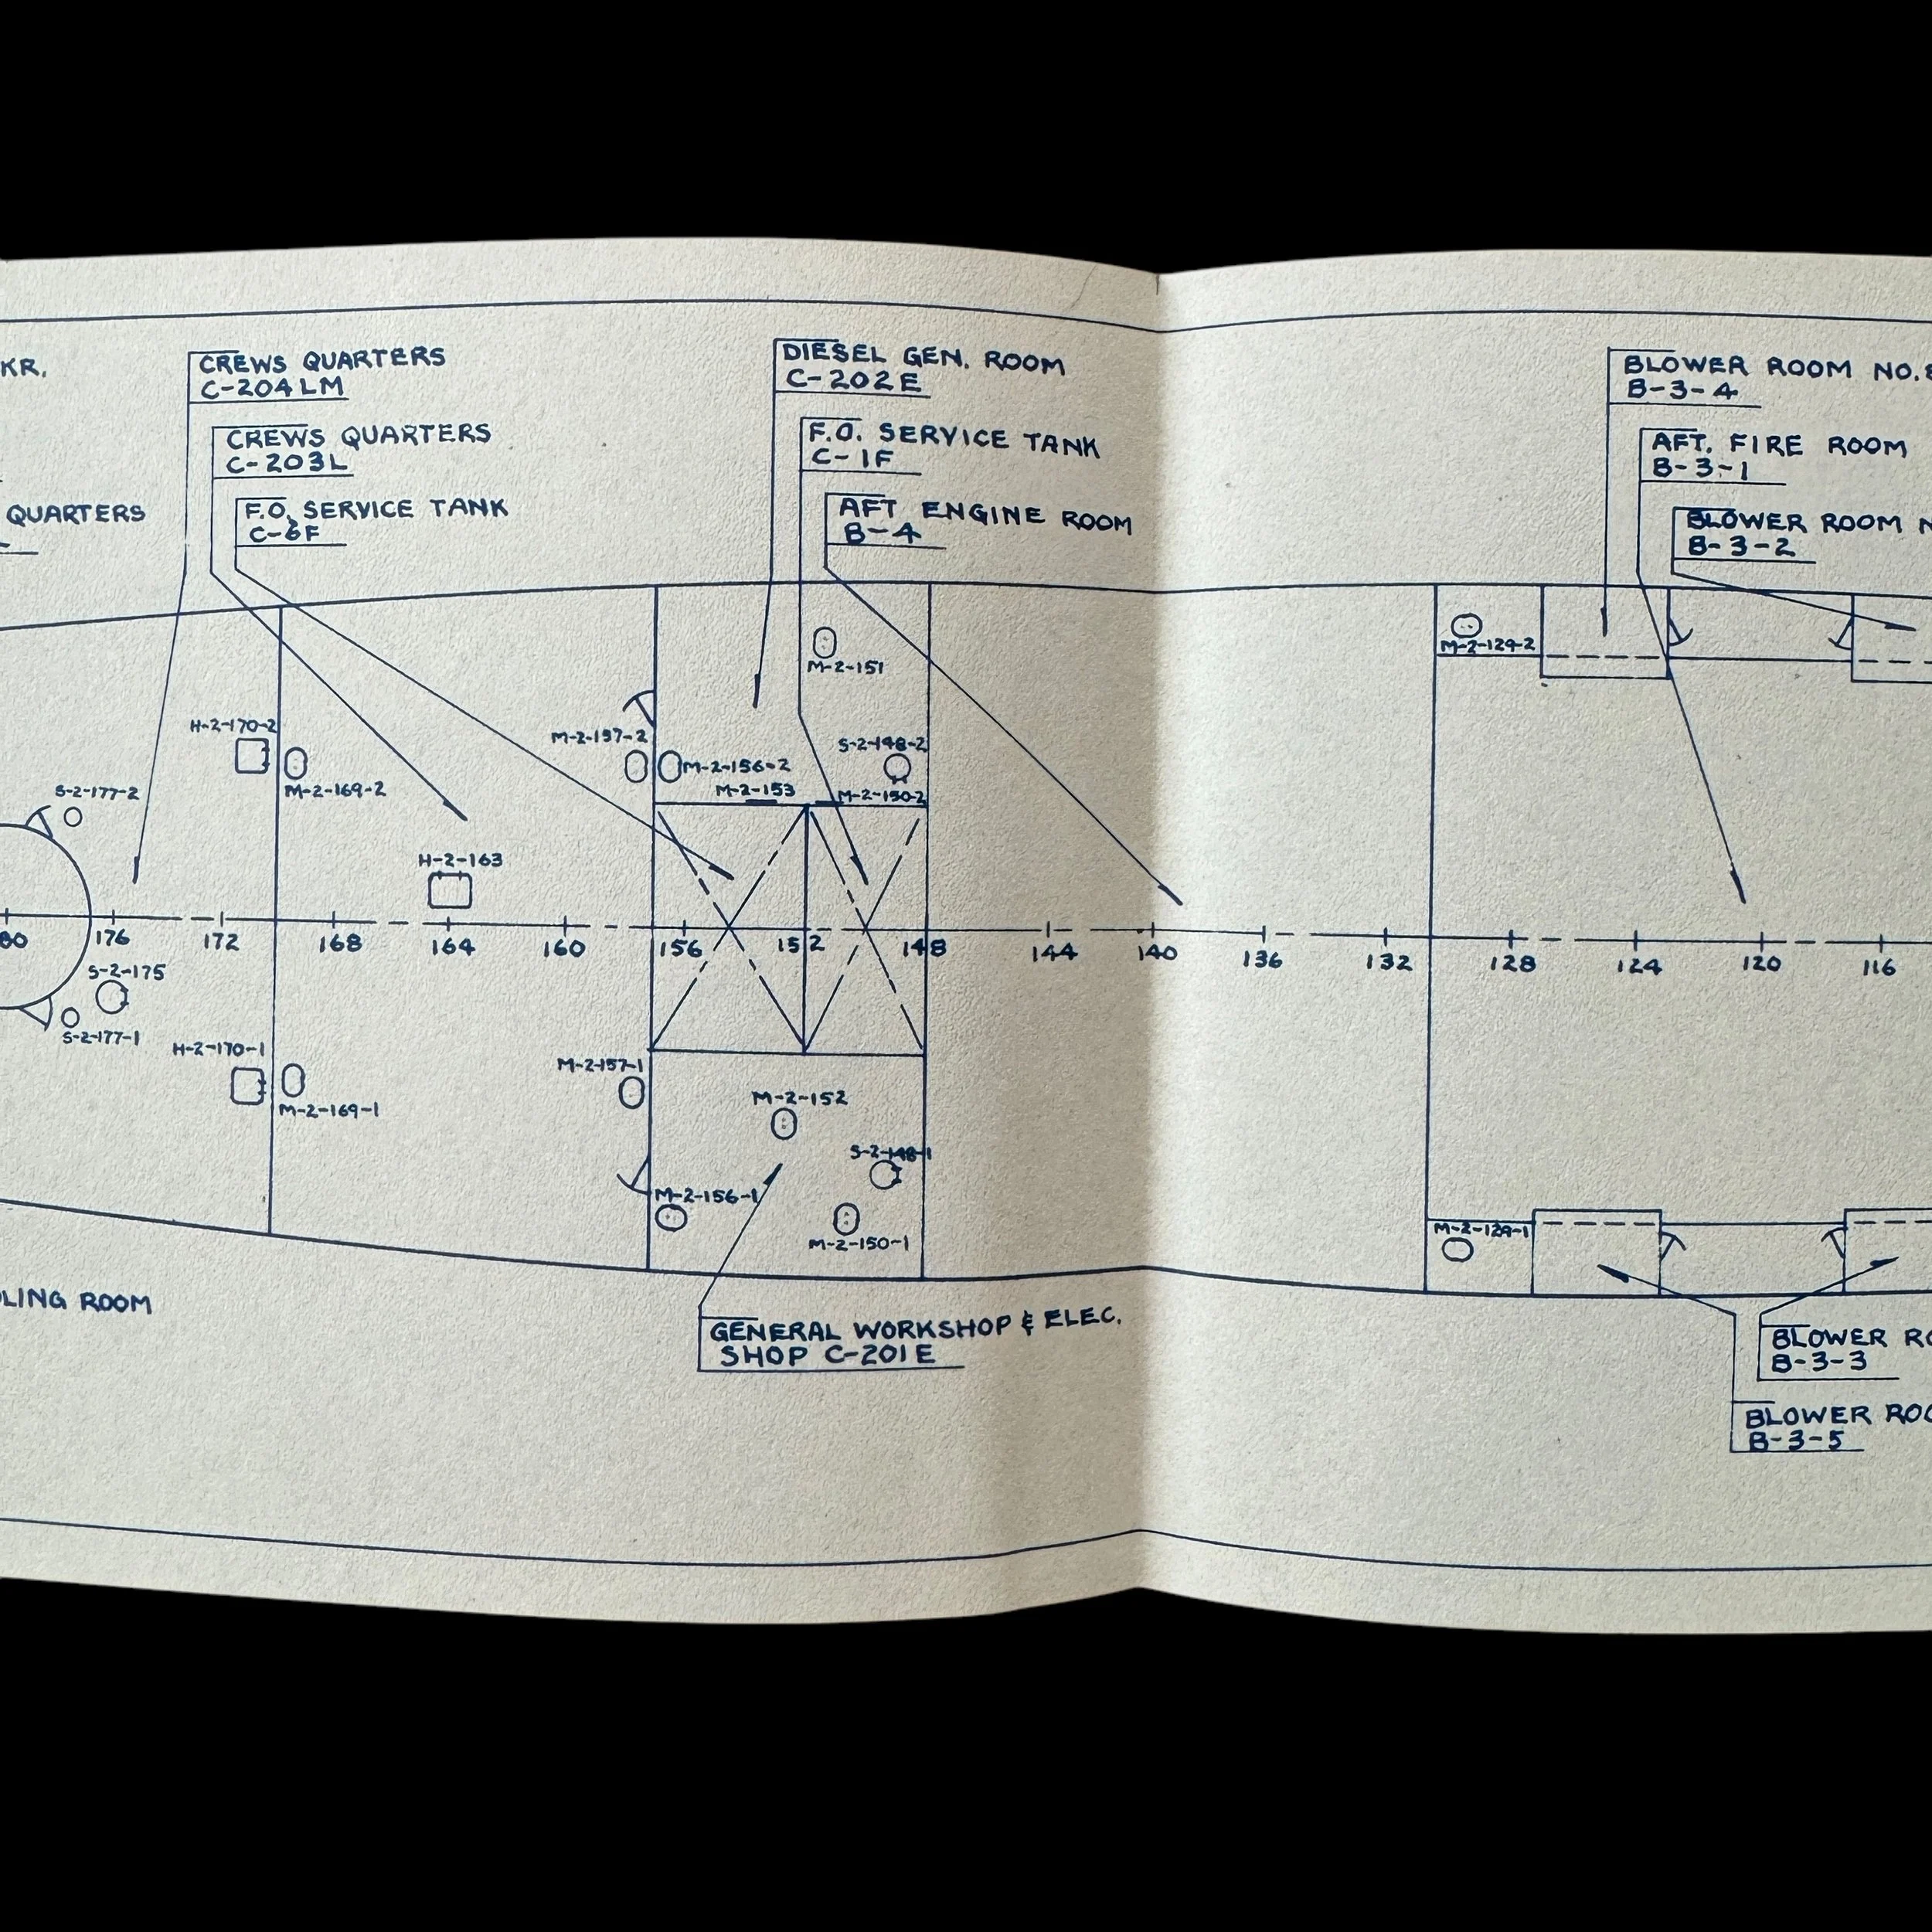 KR.
QUARTERS
CREWS QUARTERS
C-204LM
CREWS QUARTERS
C-203L
F.O. SERVICE TANK
C-6F
DIESEL GEN. ROOM
C-202E
F.O. SERVICE TANK
C-1F
AFT ENGINE ROOM
B-4
BLOWER ROOM NO.
B-3-4
AFT. FIRE ROOM
B-3-1
BLOWER ROOM N
B-3-2
M-2-151
M-2-129-2
H-2-170-2
M-2-169-2
S-2-177-2
M-2-157-2
M-2-156-2
M-2-153
S-2-148-2
M-2-150-2
H-2-163
80
176
172
168
164
160
156
152
148
144
140
136
132
128
124
120
116
S-2-175
S-2-177-1
H-2-170-1
M-2-169-1
M-2-157-1
M-2-152
S-2-148-1
M-2-156-1
M-2-150-1
M-2-129-1
LING ROOM
GENERAL WORKSHOP & ELEC.
SHOP C-201E
BLOWER RO
B-3-3
BLOWER ROO
B-3-5